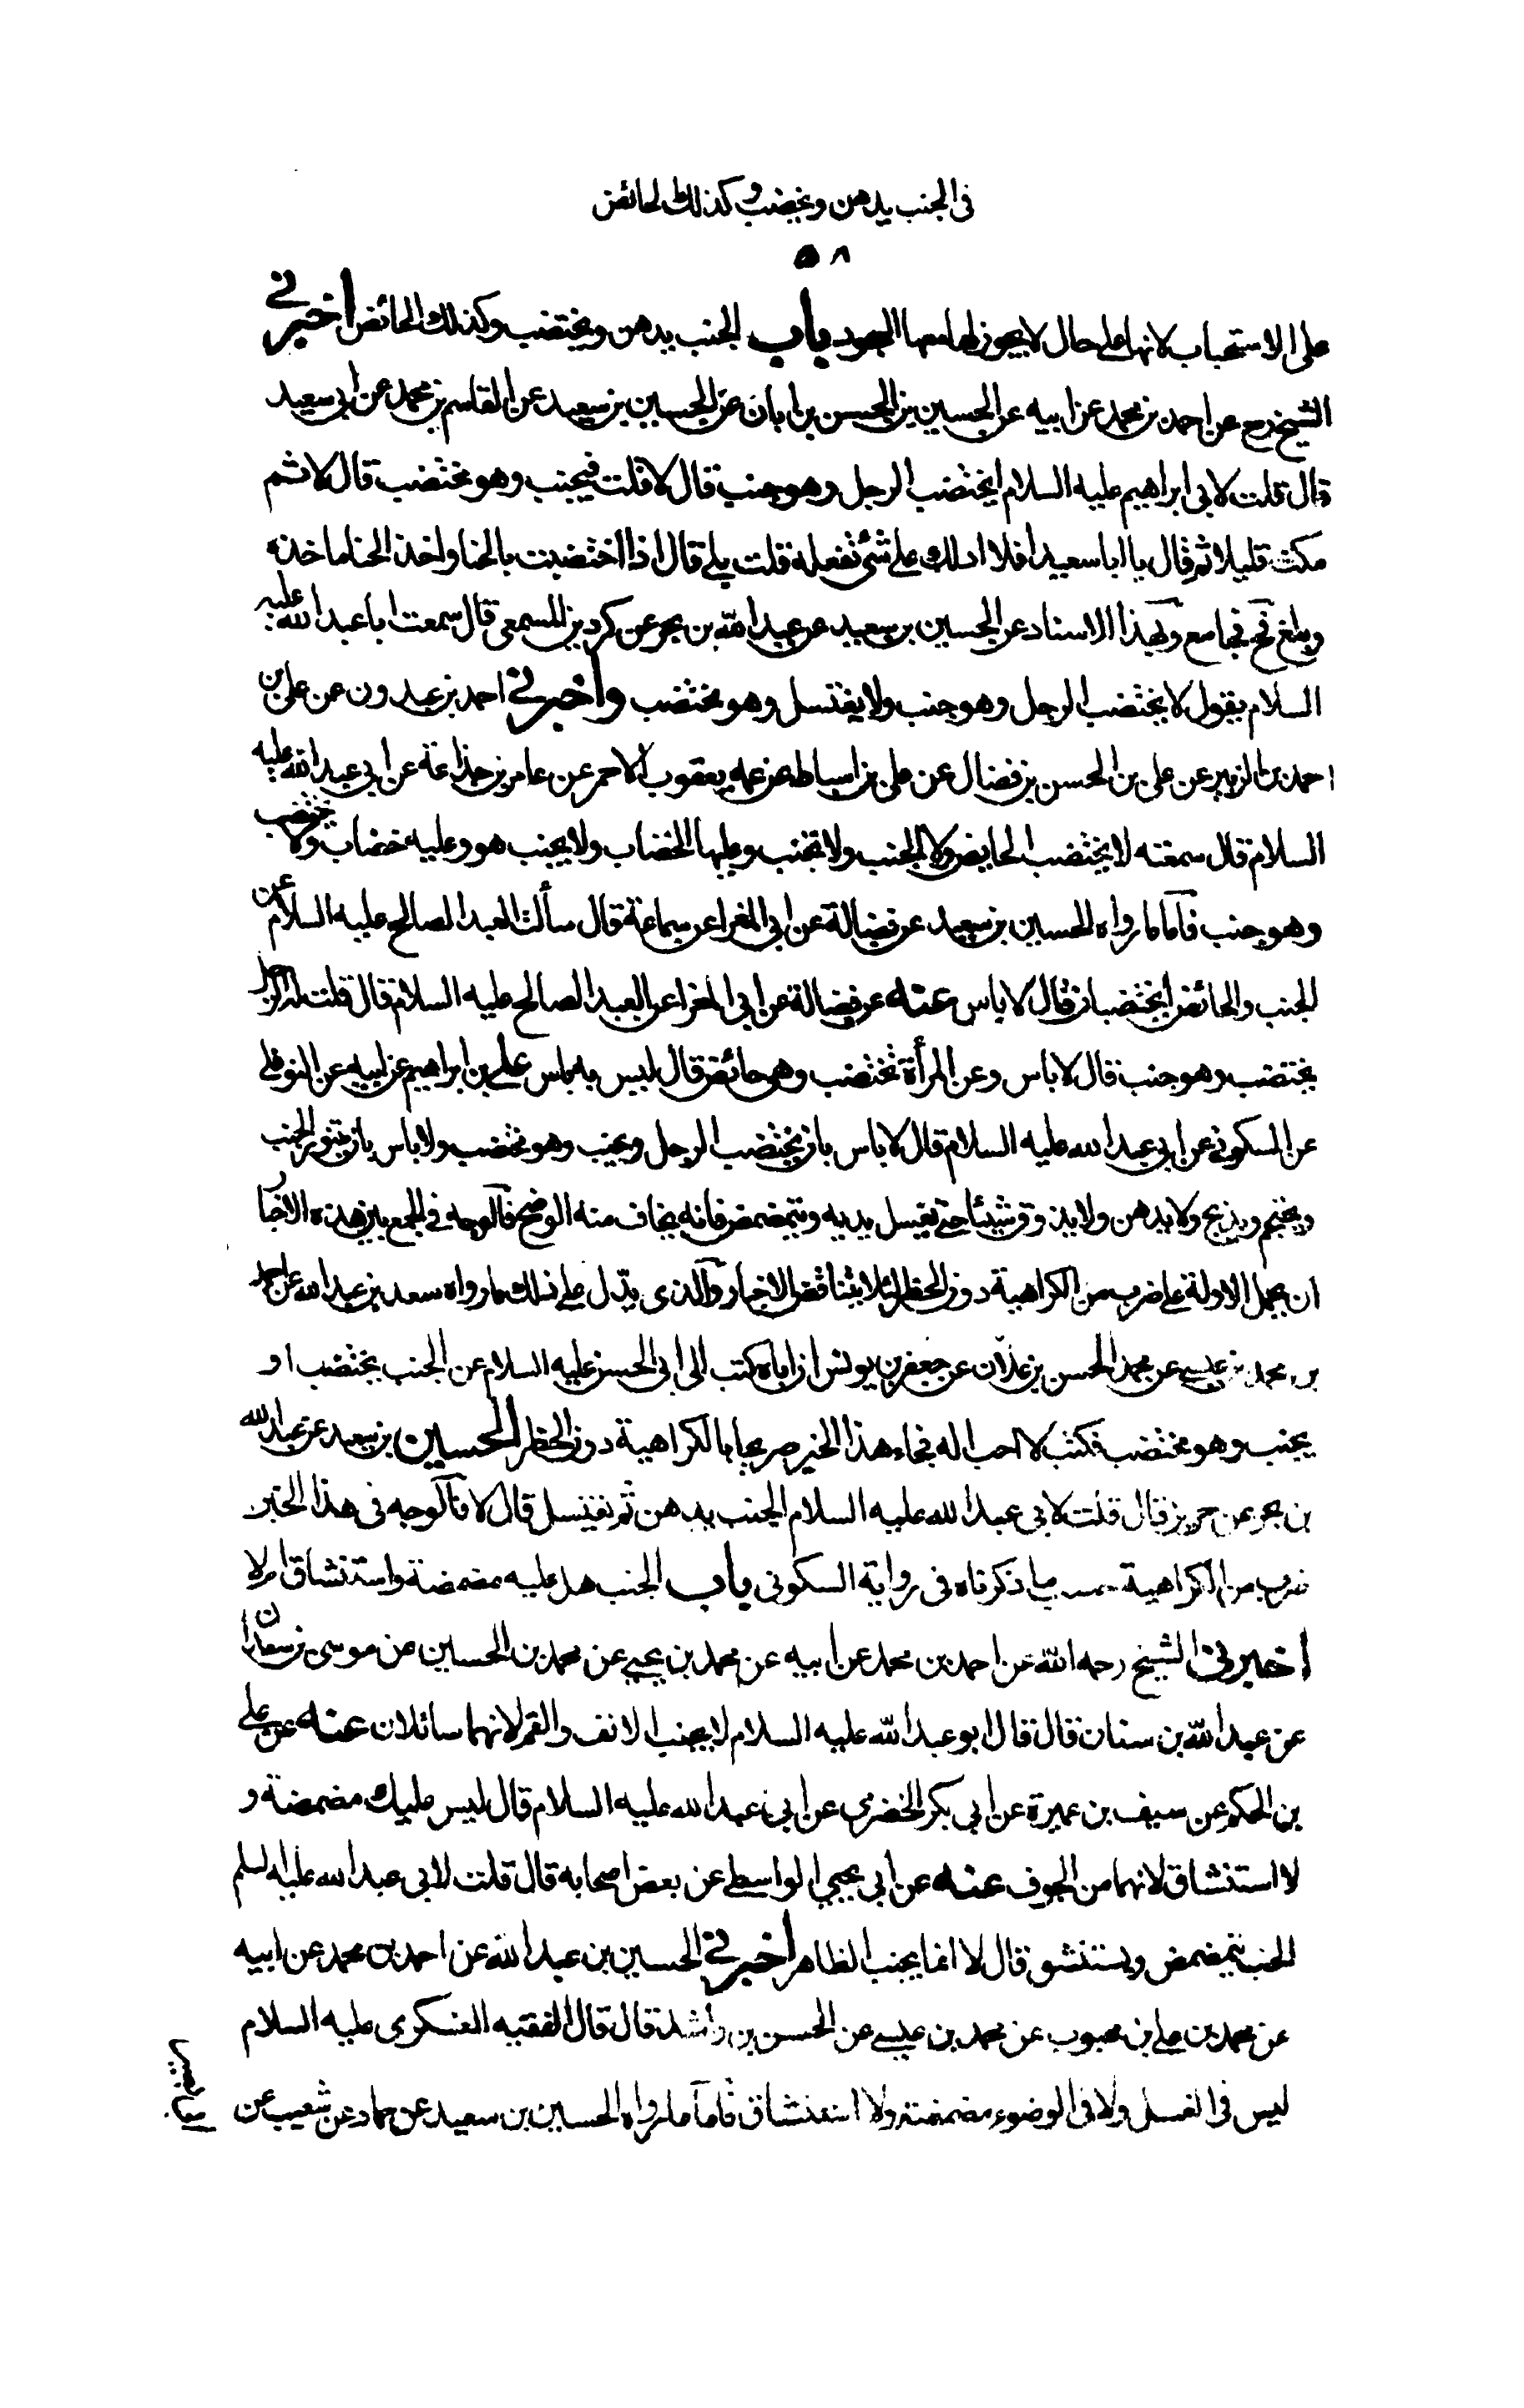 فى الجنب يدهن ويخضب وكذلك الحائض
٥٨
على الاستحباب لانها على حال لا يجوز لها معها السجود باب الجنب يدهن ويختضب وكذلك الحائض اخبرنى
الشيخ ره عن احمد بن محمد عن ابيه عن الحسين بن الحسن بن ابان عن الحسين بن سعيد عن القاسم بن محمد عن ابى سعيد
قال قلت لابى ابراهيم عليه السلام ايختضب الرجل وهو جنب قال لا قلت فيجنب وهو مختضب قال لا ثم
مكث قليلا ثم قال يا ابا سعيد افلا ادلك على شئ تفعله قلت بلى قال اذا اختضبت بالحنا واخذ الحنا ماخذه
وبلغ فح فجامع وبهذا الاسناد عن الحسين بن سعيد عن عبد الله بن بحر عن كردين المسمعى قال سمعت ابا عبد الله عليه
السلام يقول لا يختضب الرجل وهو جنب ولا يغتسل وهو مختضب واخبرنى احمد بن عبدون عن على بن
احمد بن الزبير عن على بن الحسن بن فضال عن على بن اسباط عن عمه يعقوب الاحمر عن عامر بن جذاعة عن ابى عبد الله عليه
السلام قال سمعته لا يختضب الحايض ولا الجنب ولا تجنب وعليها الخضاب ولا يجنب هو وعليه خضاب ولا يختضب
وهو جنب فاما ما رواه الحسين بن سعيد عن فضالة عن ابى المغرا عن سماعة قال سألت العبد الصالح عليه السلام عن
الجنب والحائض ايختضبان قال لا باس عنه عن فضالة عن ابى المغرا عن العبد الصالح عليه السلام قال قلت له الرجل
يختضب وهو جنب قال لا باس وعن المرأة تختضب وهى حائض قال ليس به باس على بن ابراهيم عن ابيه عن النوفلى
عن السكونى عن ابى عبد الله عليه السلام قال لا باس بان يختضب الرجل ويجنب وهو مختضب ولا باس بان يتنور الجنب
ويحتجم ويذبح ولا يدهن ولا يذوق شيئا حتى يغسل يديه ويتمضمض فانه يخاف منه الوضح فالوجه فى الجمع بين هذه الاخبار
ان نحمل الاولة على ضرب من الكراهية دون الحظر لئلا يتناقض الاخبار والذى يدل على ذلك ما رواه سعد بن عبد الله عن احمد
بن محمد بن عيسى عن محمد الحسن بن علان عن جعفر بن يونس ان اباه كتب الى ابى الحسن عليه السلام عن الجنب يختضب او
يجنب وهو مختضب فكتب لا احب له فجاء هذا الخبر صريحا بالكراهية دون الحظر الحسين بن سعيد عن عبد الله
بن بحر عن حريز قال قلت لابى عبد الله عليه السلام الجنب يدهن ثم يغتسل قال لا فالوجه فى هذا الخبر
ضرب من الكراهية ما ذكرناه فى رواية السكونى باب الجنب هل عليه مضمضة واستنشاق ام لا
اخبرنى الشيخ رحمه الله عن احمد بن محمد عن ابيه عن محمد بن يحيى عن محمد بن الحسين عن موسى بن سعدان
عن عبد الله بن سنان قال قال ابو عبد الله عليه السلام لا يجنب الانف والفم لانهما سائلان عنه عن على
بن الحكم عن سيف بن عميرة عن ابى بكر الحضرمى عن ابى عبد الله عليه السلام قال ليس عليك مضمضة و
لا استنشاق لانهما من الجوف عنه عن ابى يحيى الواسطى عن بعض اصحابه قال قلت لابى عبد الله عليه السلم
الجنب يتمضمض ويستنشق قال لا انما يجنب الظاهر اخبرنى الحسين بن عبد الله عن احمد بن محمد عن ابيه
عن محمد بن على بن محبوب عن محمد بن عيسى عن الحسن بن راشد قال قال الفقيه العسكرى عليه السلام
ليس فى الغسل ولا فى الوضوء مضمضة ولا استنشاق فاما ما رواه الحسين بن سعيد عن حماد عن شعيب عن